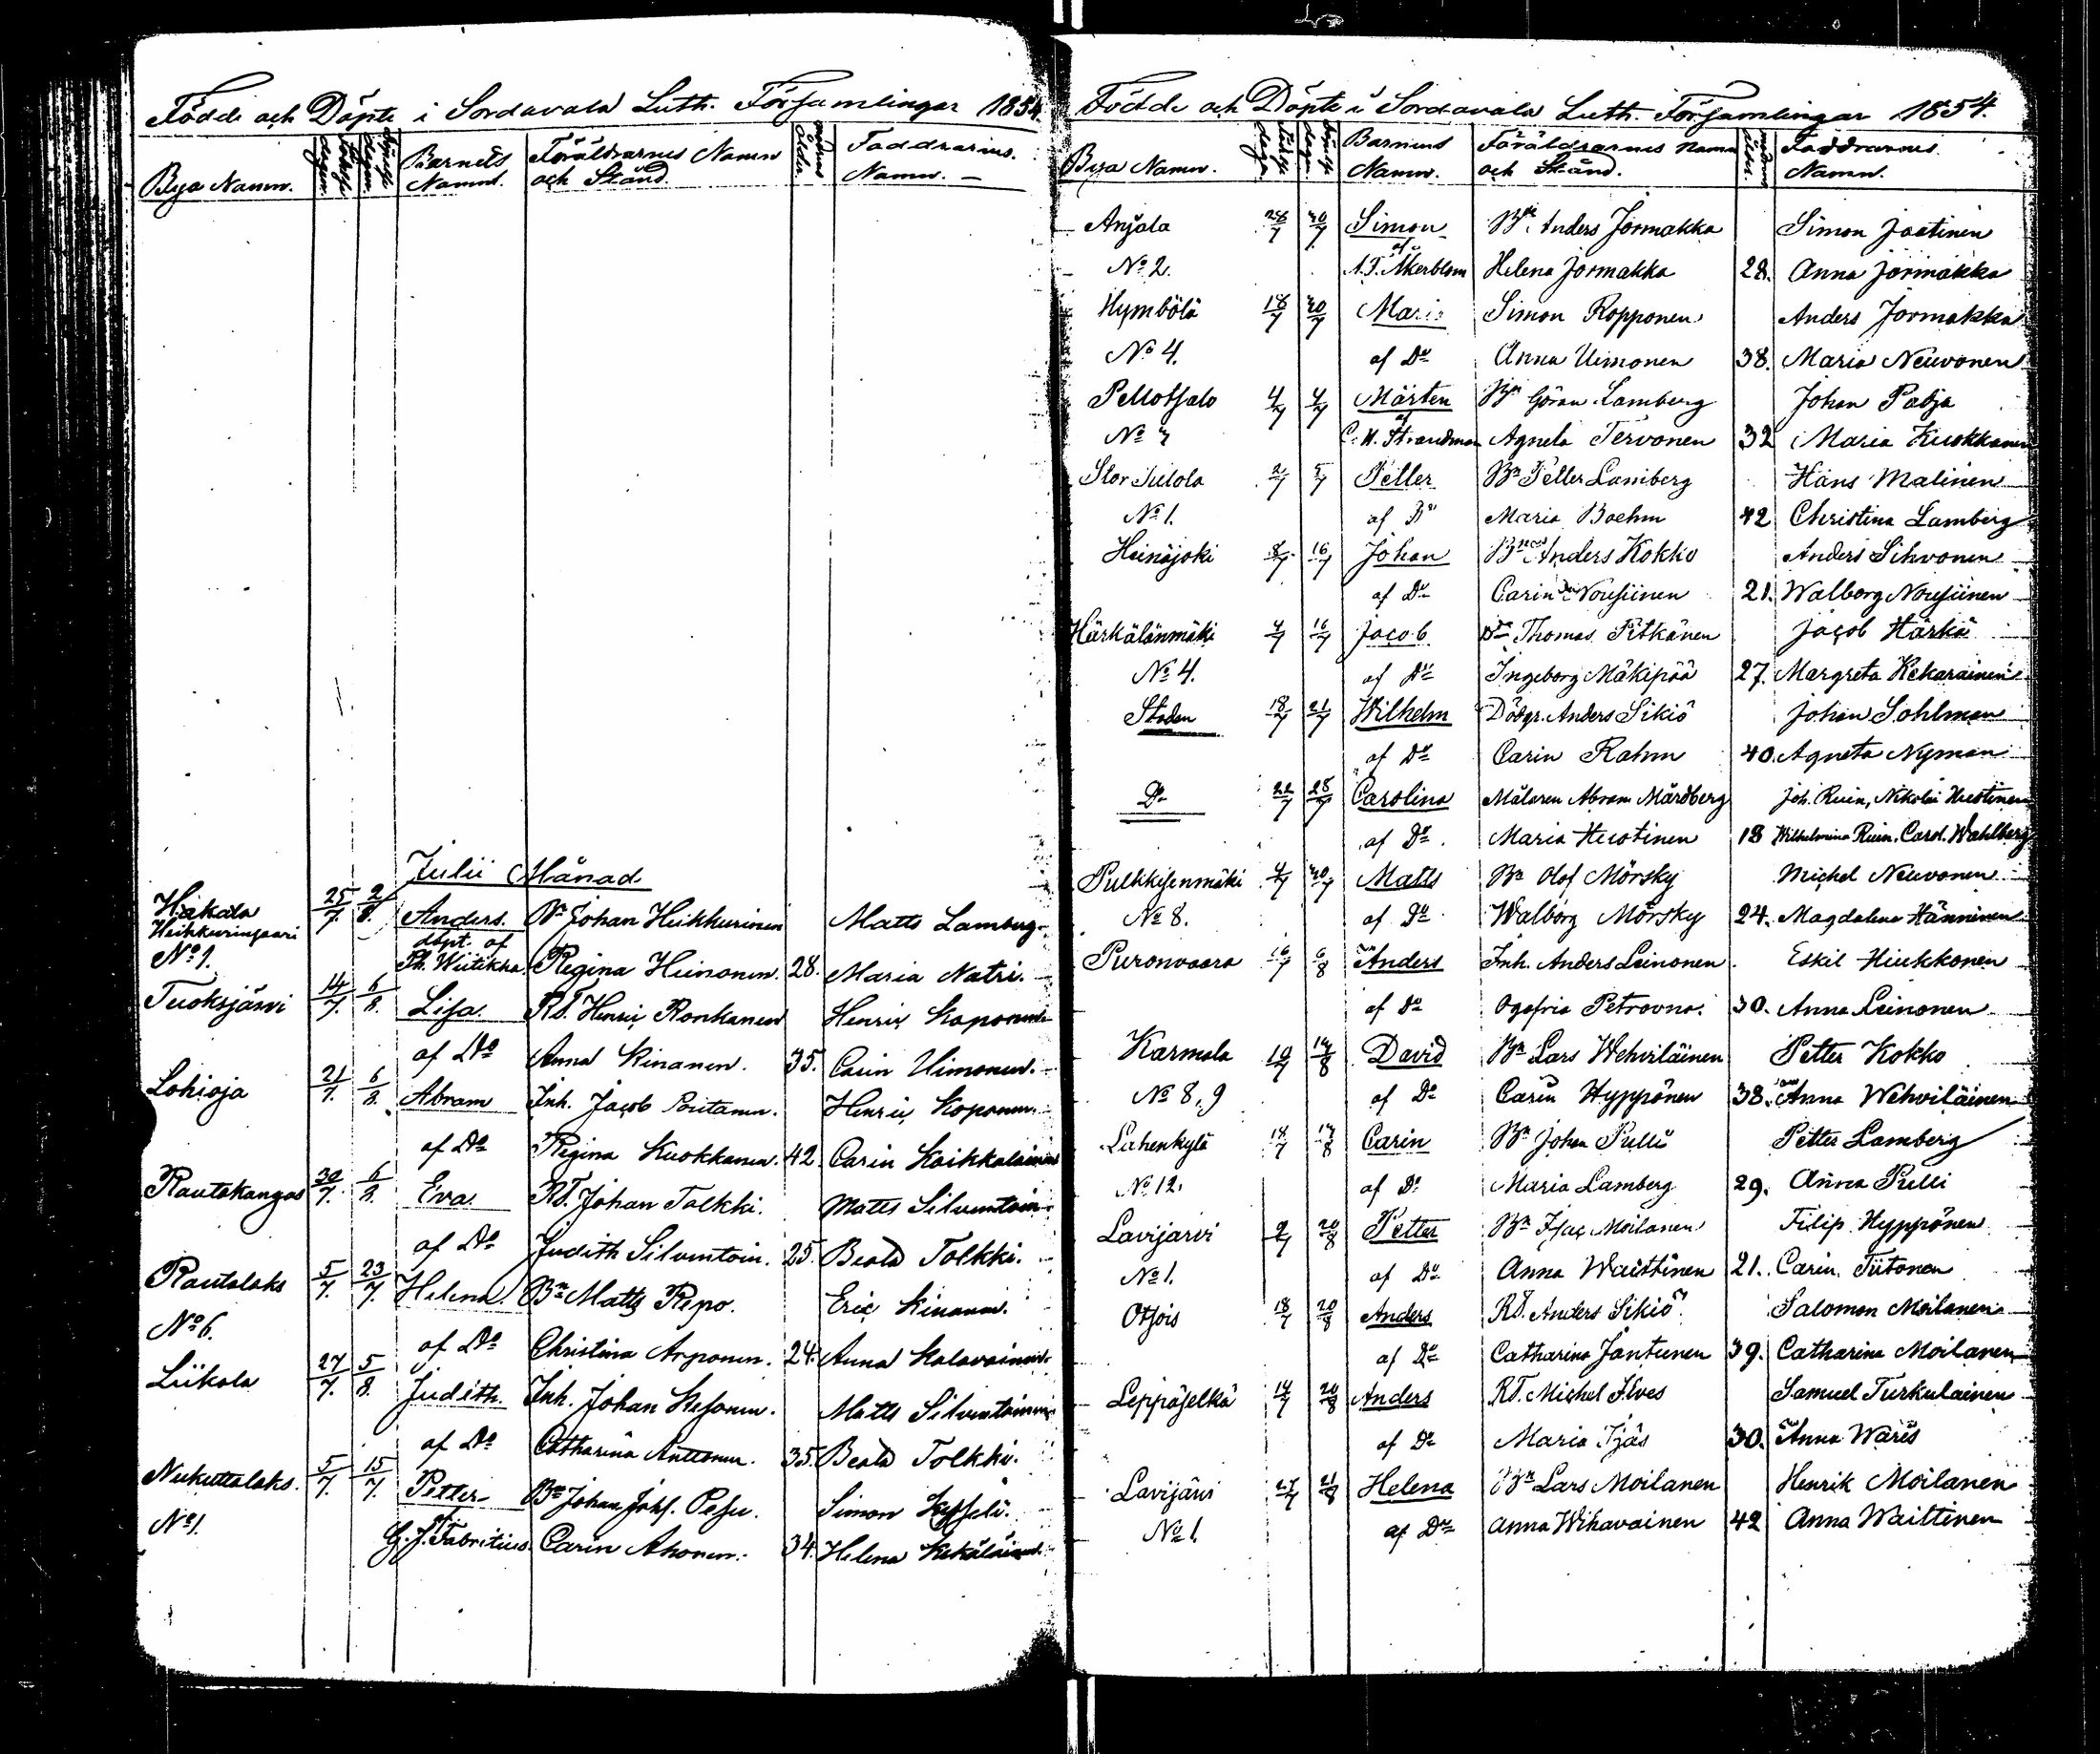 Födde och Döpte i Sordavala Luth. Församlingar 1854.
Bya Namn. födelse dagen döpelse dagen Barnets Namn. Föräldrarnes Namn och Stånd. modrens ålder. Faddrarnes Namn. —
Julii Månad
Hakala 25/7. 2/8. Anders. Bn Johan Heikkurinen Matts Lamberg
Heikkurinsaari döpt. af
No 1. Ph. Wiitikka. Regina Heinonen. 28. Maria Natri.
Tuoksjärvi 14/7. 6/8. Lisa. RT. Henric Ronkanen Henric Koponen
af Do Anna Kinanen. 35. Carin Uimonen.
Lohioja 21/7. 6/8. Abram Inh. Jacob Poutanen. Henric Koponen.
af Do Regina Kuokkanen. 42. Carin Koikkalainen
Rautakangas 30/7. 6/8. Eva. RT. Johan Tolkki. Matts Silventoin
af Do Judith Silventoin. 25. Beata Tolkki.
Rautalaks 5/7. 23/7. Helena. Bn Matts Repo. Eric Kinanen.
No 6. af Do Christina Arponen. 24. Anna Kalavainen
Liikola 27/7. 5/8. Judith. Inh. Johan Kesonen. Matts Silventoinen
af Do Catharina Anttonen. 35. Beata Tolkki.
Nukuttalaks. 5/7. 15/7. Petter Bn Johan Johs. Pesu. Simon
No 1. af G. J. Fabritius. Carin Ahonen. 34. Helena Kekäläinen
Födde och Döpte i Sordavala Luth. Församlingar 1854.
Bya Namn. födelse dagen döpelse dagen Barnens Namn. Föräldrarnes Namn och Stånd. modrens ålder. Faddrarnes Namn.
Anjala 28/7 30/7 Simon Bn. Anders Jormakka Simon Jaatinen
No 2. af A. T. Åkerblom Helena Jormakka 28. Anna Jormakka
Hymbölä 18/7 30/7 Maria Simon Ropponen Anders Jormakka
No 4. af Do Anna Uimonen 38. Maria Neuvonen
Pellotsalo 4/7 4/7 Mårten Bn Göran Lamberg Johan Patja
No 7 af C. H. Strandman Agneta Tervonen 32 Maria Kuokkanen
Stor Tulola 2/7 5/7 Petter Bn Petter Lamberg Hans Malinen
No 1. af Do Maria Boehm 42 Christina Lamberg
Heinäjoki 8/7 16/7 Johan Bn Anders Kokko Anders Sihvonen
af Do Carin Nousiinen 21. Walborg Nousiinen
Härkälänmäki 4/7 16/7 Jacob Bn Thomas Pitkänen Jacob Härkä
No 4. af Do Ingeborg Mäkipää 27. Margreta Kekarainen
Staden 18/7 21/7 Wilhelm Dödgr. Anders Sikiö Johan Sohlman
af Do Carin Rahm 40. Agneta Nyman
Do 22/7 28/7 Carolina Målaren Abram Mårdberg Joh. Ruin, Nikolai Huotinen
af Do. Maria Huotinen 18 Wilhelmina Ruin. Carol. Wahlberg
Pulkkisenmäki 4/7 30/7 Matts Bn Olof Mörsky Michel Neuvonen
No 8. af Do Walborg Mörsky 24. Magdalena Hänninen
Puronvaara 16/7 6/8 Anders Inh. Anders Leinonen Eskil Hiukkonen
af Do Ogafria Petrovna. 30. Anna Leinonen
Karmala 19/7 14/8 David Bn Lars Wehviläinen Petter Kokko
No 8, 9 af Do Carin Hyppönen 38. Anna Wehviläinen
Lahenkylä 18/7 14/8 Carin Bn Johan Pulli Petter Lamberg
No 12. af Do Maria Lamberg 29. Anna Pulli
Lavijarvi 2/7 20/8 Petter Bn Isac Moilanen Filip Hyppönen
No 1. af Do Anna Waittinen 21. Carin Tiitonen
Otsois 18/7 20/8 Anders RT. Anders Sikiö Salomon Moilanen
af Do Catharina Jantunen 39. Catharina Moilanen
Leppäselkä 14/7 20/8 Anders RT. Michel Ilves Samuel Turkulainen
af Do Maria Ijäs 30. Anna Wares
Lavijärvi 27/7 21/8 Helena Bn Lars Moilanen Henrik Moilanen
No 1. af Do Anna Wihavainen 42 Anna Waittinen